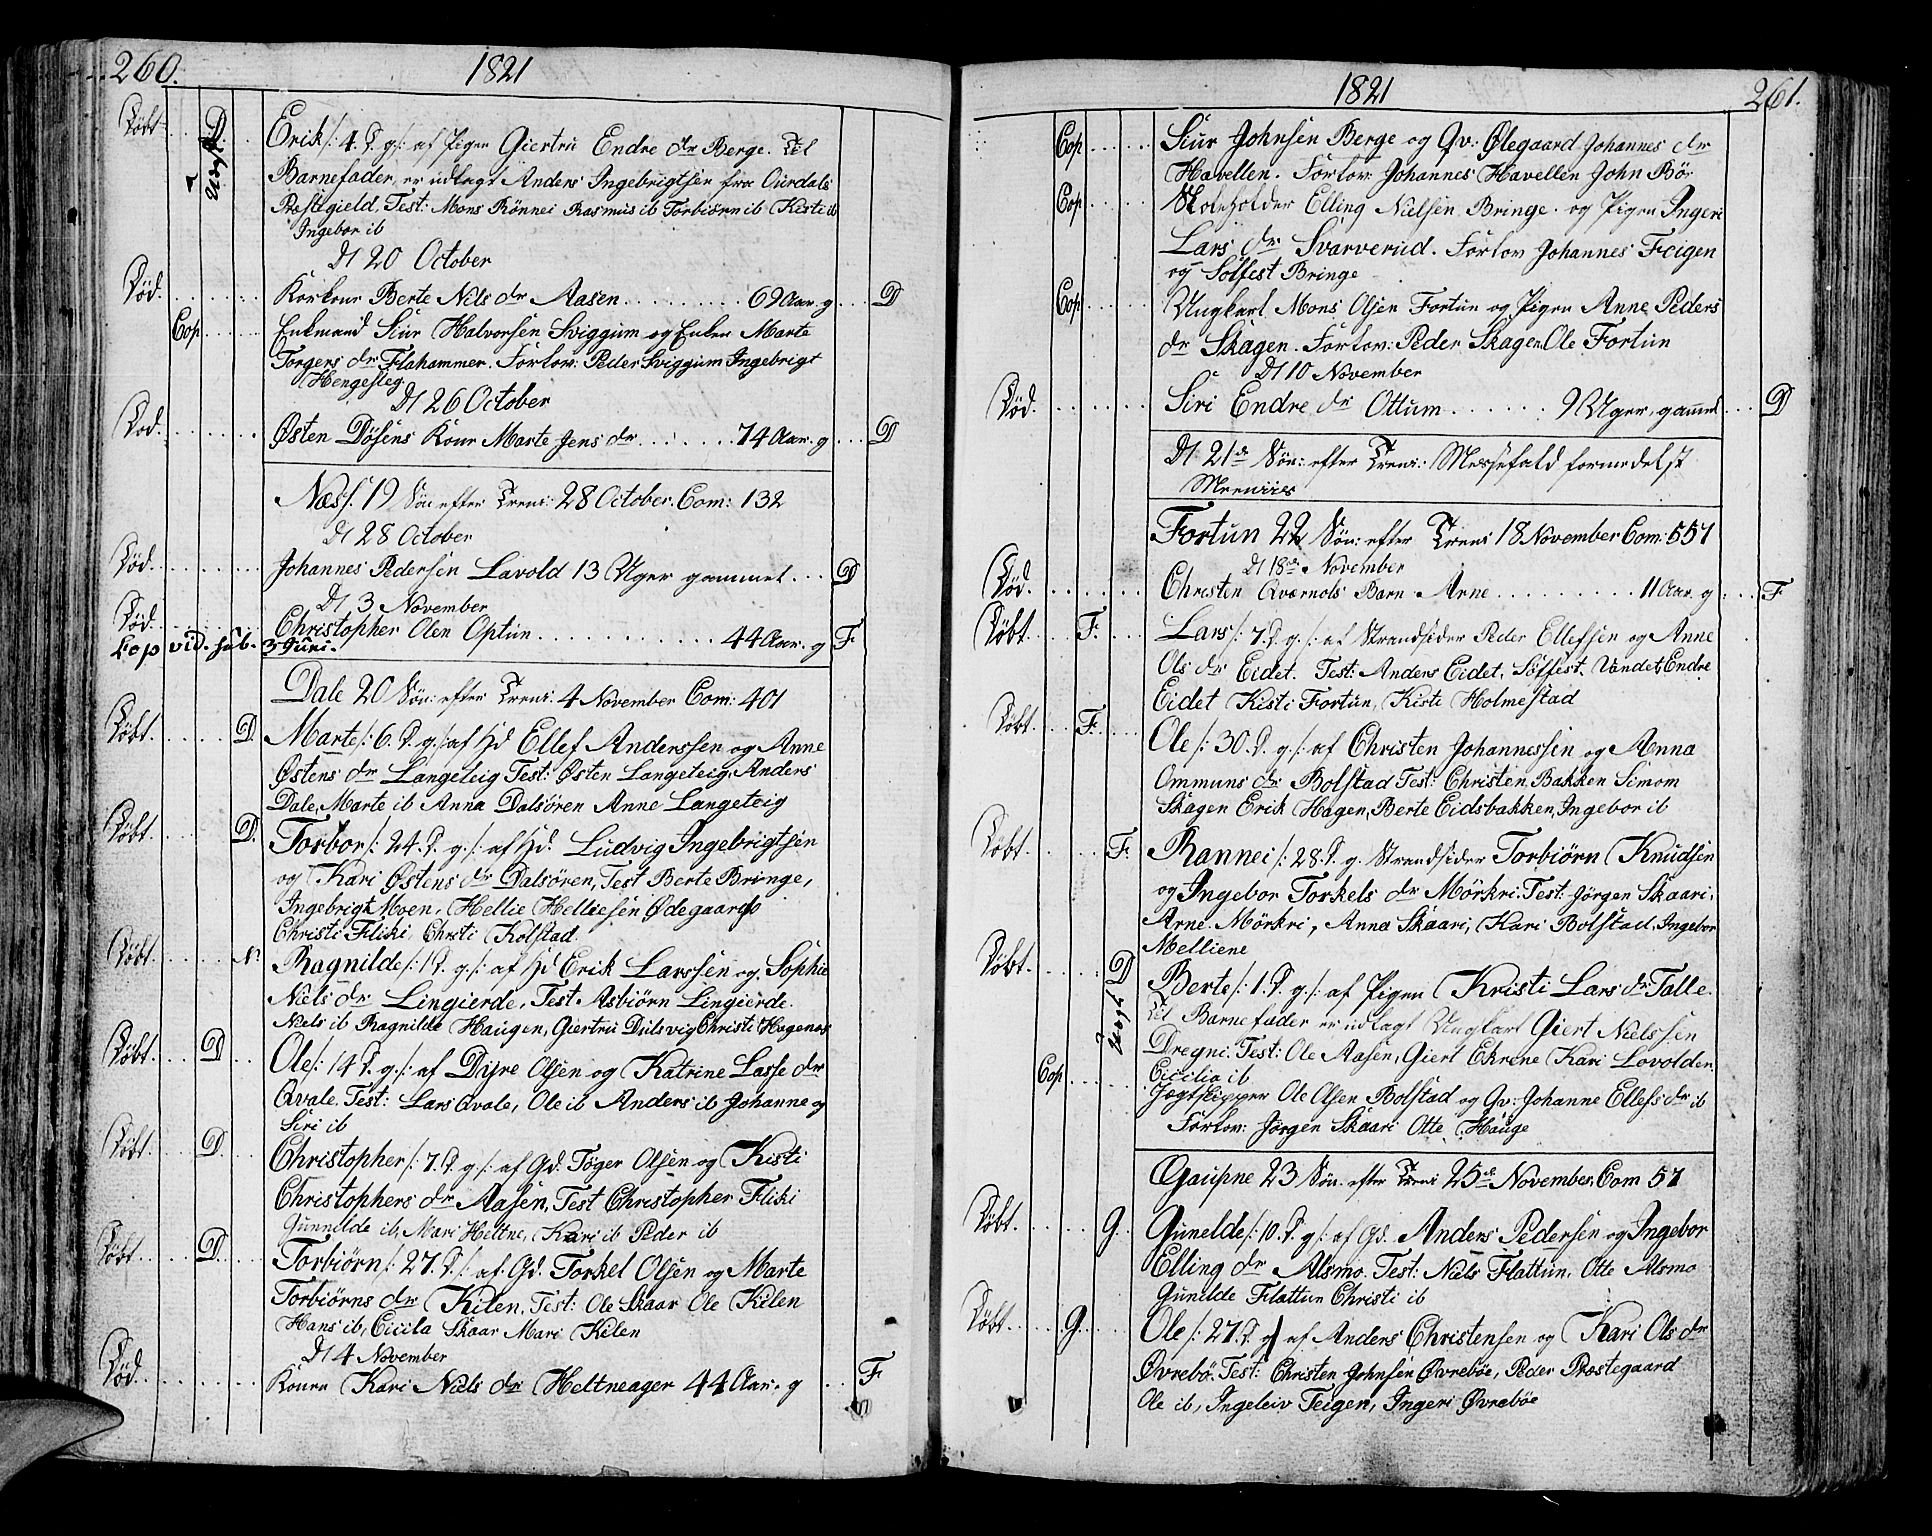 260.
1821
Döbt. D. uægte Erik /: 4. D. g /: af Pigen Giertru Endre dr Berge. Til
Barnefader er udlagt Anders Ingebrigtsen fra Ourdals
Præstegield. Test: Mons Rönnei Rasmus ib Torbiörn ib Kisti ib
Ingebor ib
Dt 20 October
Död. Kårkone Berte Nils dr Aasen 69 Aar. g D
Cop. Enkmand Siur Halvorsen Sviggum og Enken Marte
Torgers dr Flahammer. Forlov: Peder Sviggum Ingebrigt
Hengesleg
Dt 26 October
Död. Østen Døsens Kone Marte Jens dr 74 Aar. g D
Næss. 19 Sön: efter Treni: 28 October. Com: 132
Dt 28 October
Död. Johannes Pedersen Lavold 13 Uger gammel D
Dt 3 November
Död. Christopher Olen Optun 44 Aar. g F
Cop vid. sub. 3 Juni.
Dale 20 Sön: efter Treni: 4 November Com: 401
Döbt. D. Marte /: 6. D. g /: af Hd Ellef Anderssen og Anne
Østens dr Langeteig Test: Østen Langeteig, Anders
Dale, Marte ib Anna Dalsören Anne Langeteig
Döbt. D. Torbor /: 24. D. g /: af Hd. Ludvig Ingebrigtsen
og Kari Østens dr Dalsören, Test Berte Bringe,
Ingebrigt Moen, Hellie Helliesen Ødegaard
Christi Fliki, Christi Kolstad.
Döbt. N. Ragnilde /: 1 D. g /: af Hd Erik Larssen og Sophie
Niels dr Lingierde, Test Asbiörn Lingierde.
Niels ib Ragnilde Haugen, Giertru Dulsvig Christi Hagenæs
Döbt. D. Ole /: 14 D. g /: af Dyre Olsen og Katrine Lasse dr
Qvale. Test: Lars Qvale, Ole ib Anders ib Johanne og
Siri ib
Döbt. D. Christopher /: 7. D. g /: af Gd. Töger Olsen og Kisti
Christophers dr Aasen, Test Christopher Fliki
Gunnilde ib, Mari Heltne, Kari ib Peder ib
Döbt. D. Torbiörn /: 27. D. /: af Gd. Torkel Olsen og Marte
Torbiörns dr Kilen, Test: Ole Skaar Ole Kilen
Hans ib, Cicila Skaar Mari Kilen
Dt 4 November
Död. Konen Kari Niels dr Heltneager 44 Aar. g F
1821
261.
Cop Siur Johnsen Berge og Qv: Ølegaard Johannes dr
Havellen. Forlov: Johannes Havellen John Bör
Cop Skoleholder Elling Nielsen Bringe. og Pigen Ingeri
Lars dr Svarverud. Forlov Johannes Feigen
og Sölfest Bringe
Cop Ungkarl Mons Olsen Fortun og Pigen Anne Peders
dr Skagen. Forlov: Peder Skagen Ole Fortun
Dt 10 November
Död. Siri Endre dr Ottum 9 Uger, gammel D
Dt 21de Sön: efter Treni: Messefald formedelst
Fortun 22 Sön: efter Treni 18 November Com: 557
Dt 18de November
Död. Christen Qværnols Barn Arne 11 Aar. g F
Döbt. F. Lars /: 7 D. g /: af Strandsider Peder Ellefsen og Anne
Ols dr Eidet. Test: Anders Eidet, Solfest Vandet, Endre
Eidet Kisti Fortun, Kisti Holmestad
Döbt. F. Ole /: 30. D. g /: af Christen Johannessen og Anna
Ommuns dr Bolstad Test: Christen Bakken Simom
Skagen Erik Hagen, Berte Eidsbakken, Ingebor ib
Döbt. F. Rannei /: 28. D. g. Strandsider Torbiörn Knudsen
og Ingebor Torkels dr Mörkri. Test: Jörgen Skaari,
Arne Mörkri, Anna Skaari, Kari Bolstad, Ingebor
Melliene
Döbt. D uægte Berte /: 1. D. g /: af Pigen Kristi Lars dr Talle.
Til Barnefader er udlagt Ungkarl Giert Nielssen
Dregni. Test: Ole Aasen, Giert Ekrene Kari Lovolden,
Cicilia ib
Cop Jægtskipper Ole Olsen Bolstad og Qv: Johanne Ellefs dr ib
Forlov: Jörgen Skaari Otte Hauge
Gaupne 23 Sön. efter Treni 25de November. Com 57
Döbt. G. Gunelde /: 10. D. g /: af Gd. Anders Pedersen og Ingebor
Elling dr Alsmo. Test: Niels Flattun, Otte Alsmo
Gunilde Flattun Christi ib
Döbt. G. Ole /: 27. D. g /: af Anders Christensen og Kari Ols dr
Øvrebö. Test: Christen Johnsen Øvreböe, Peder Præstegaard
Ole ib, Ingeleiv Teigen, Ingeri Øvreböe